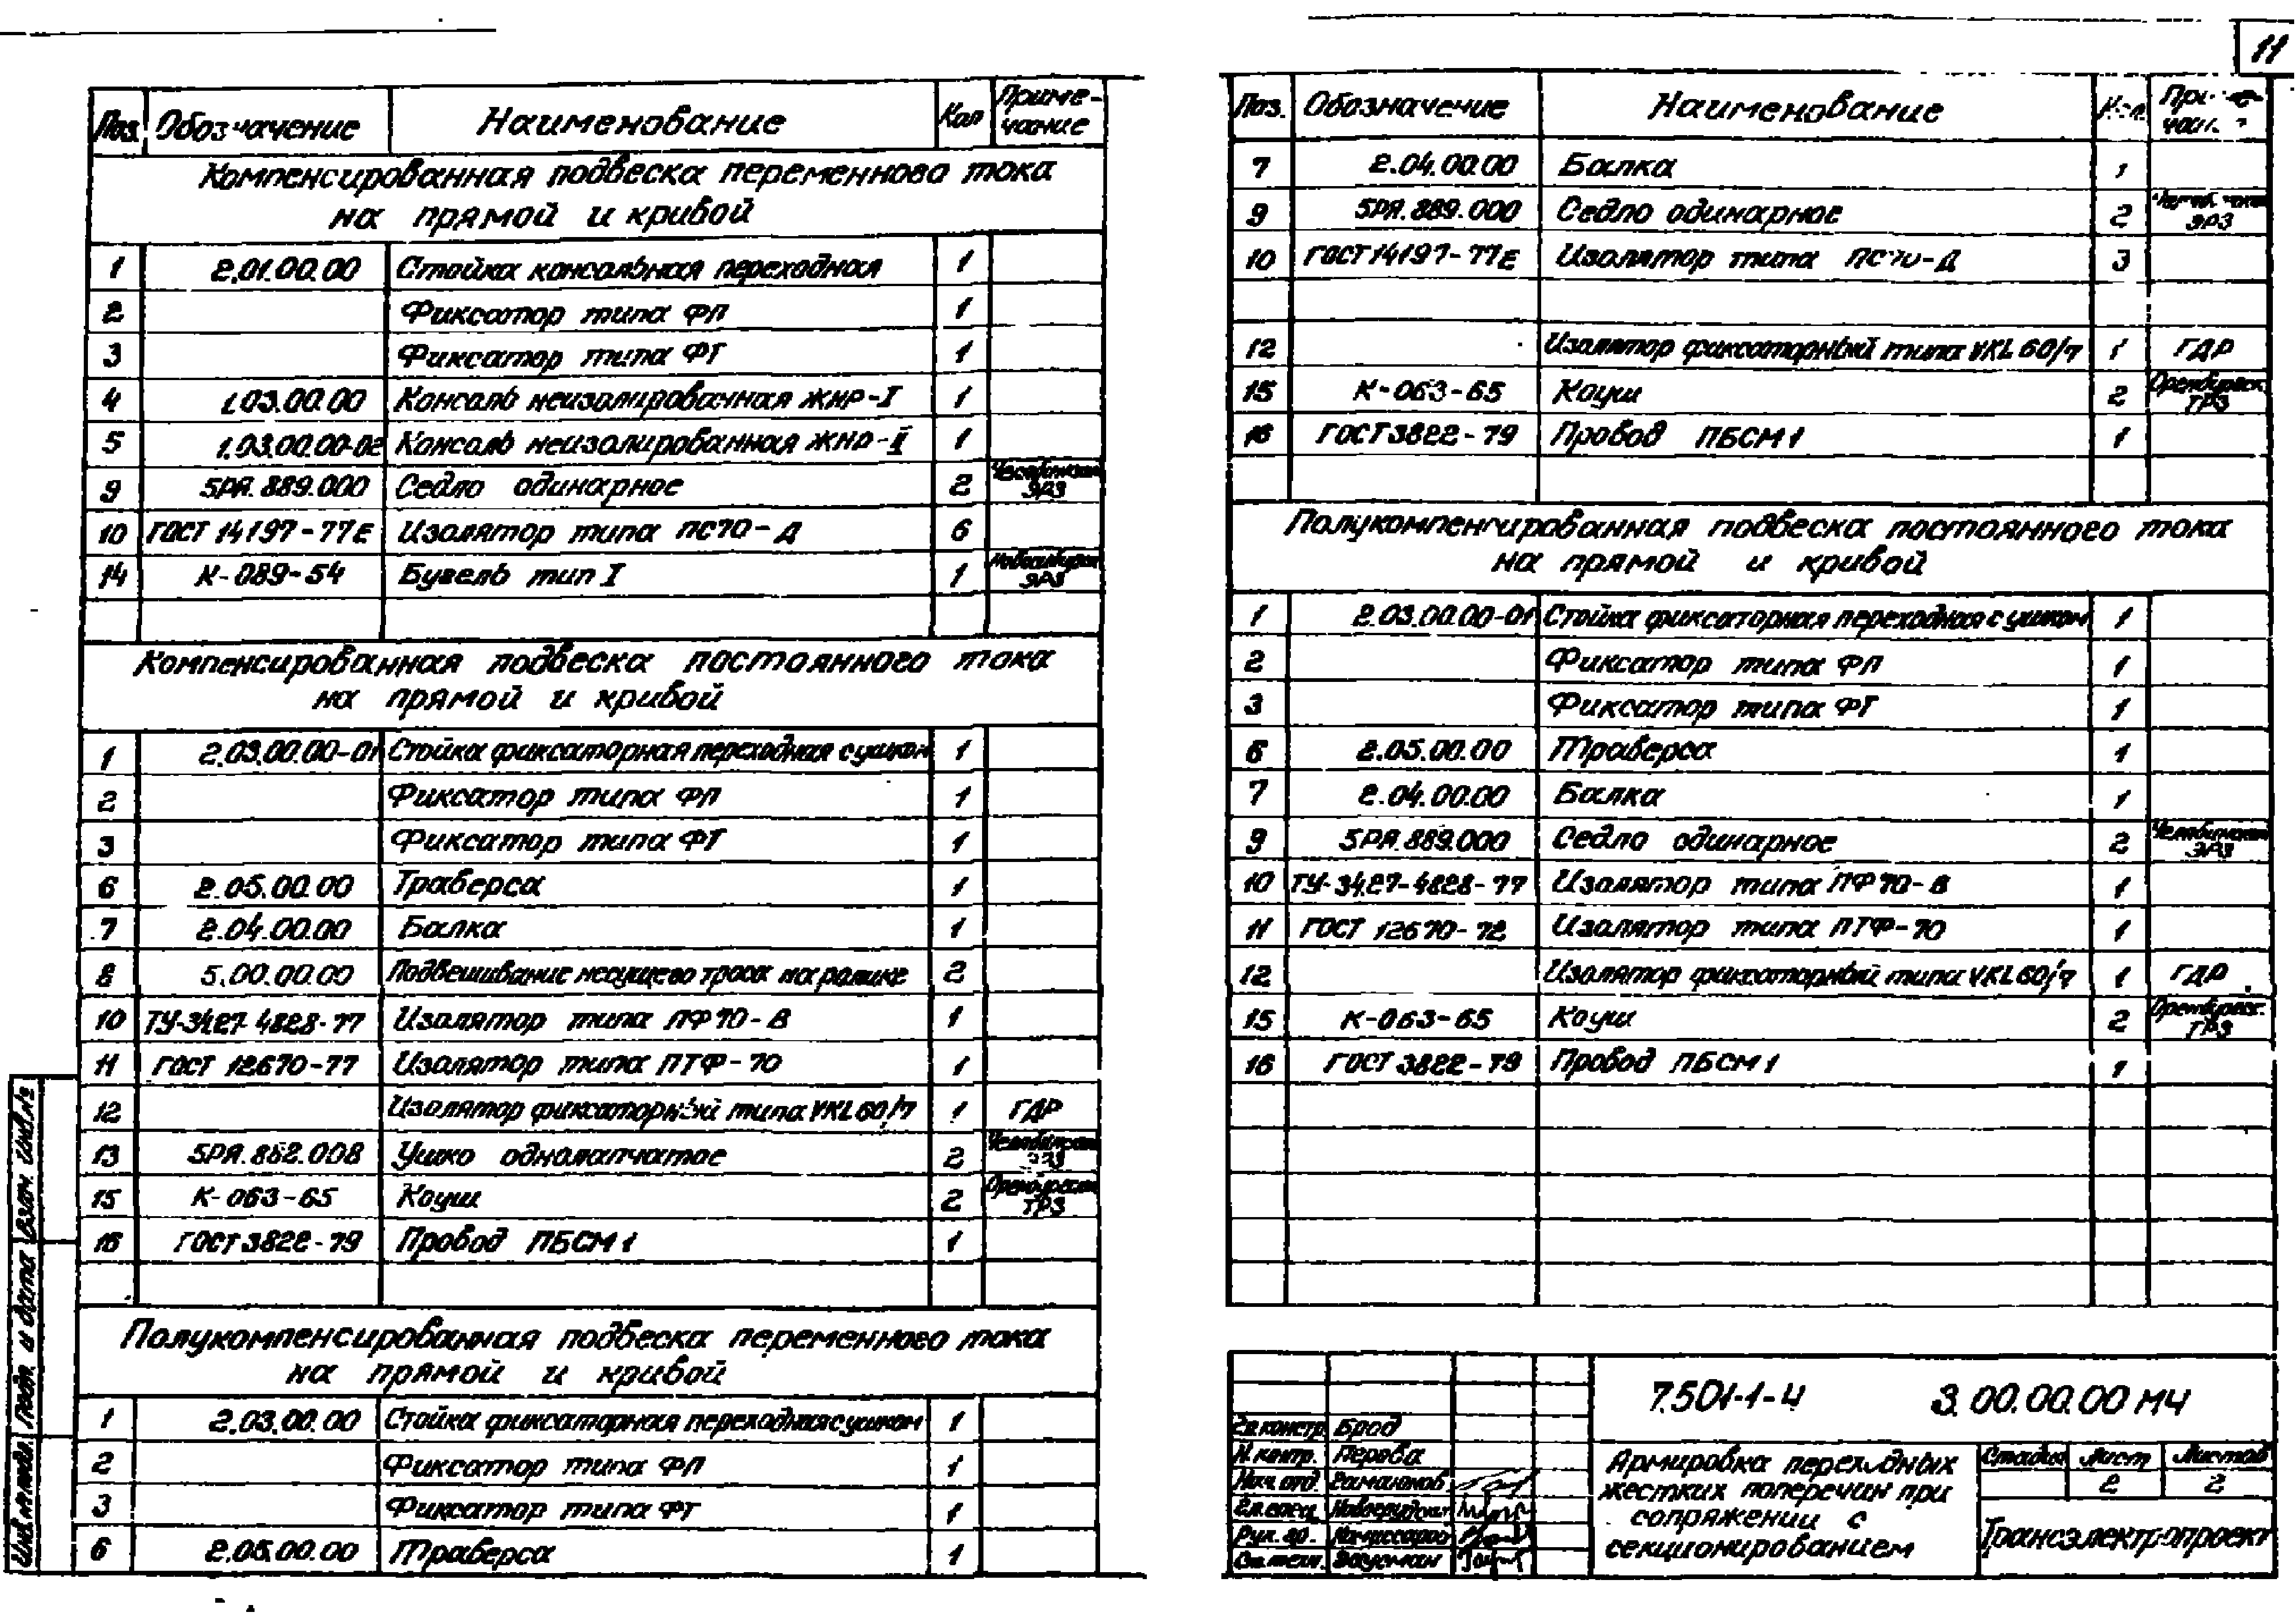 11
Поз. Обозначение Наименование Кол Приме-
чание
Компенсированная подвеска переменного тока
на прямой и кривой
1 2.01.00.00 Стойка консольная переходная 1
2 Фиксатор типа ФП 1
3 Фиксатор типа ФГ 1
4 1.03.00.00 Консоль неизолированная ЖНР-I 1
5 1.03.00.00-02 Консоль неизолированная ЖНР-II 1
9 5РЯ.889.000 Седло одинарное 2 Челябинский
ЭРЗ
10 ГОСТ 14197-77Е Изолятор типа ПС70-Д 6
14 К-089-54 Бугель тип I 1 Новосибирск
ЭРЗ
Компенсированная подвеска постоянного тока
на прямой и кривой
1 2.03.00.00-01 Стойка фиксаторная переходная с ушком 1
2 Фиксатор типа ФП 1
3 Фиксатор типа ФГ 1
6 2.05.00.00 Траверса 1
7 2.04.00.00 Балка 1
8 5.00.00.00 Подвешивание несущего троса на ролике 2
10 ТУ-3427-4828-77 Изолятор типа ПФ70-В 1
11 ГОСТ 12670-77 Изолятор типа ПТФ-70 1
12 Изолятор фиксаторный типа VKL60/7 1 ГДР
13 5РЯ.862.008 Ушко однолапчатое 2 Челябинский
ЭРЗ
15 К-063-65 Коуш 2 Оренбургский
ТРЗ
16 ГОСТ 3822-79 Провод ПБСМ1 1
Полукомпенсированная подвеска переменного тока
на прямой и кривой
1 2.03.00.00 Стойка фиксаторная переходная с ушком 1
2 Фиксатор типа ФП 1
3 Фиксатор типа ФГ 1
6 2.05.00.00 Траверса 1
Инв. № подл. Подп. и дата Взам. инв. №
Поз. Обозначение Наименование Кол. Приме-
чание
7 2.04.00.00 Балка 1
9 5РЯ.889.000 Седло одинарное 2
ЭРЗ
10 ГОСТ 14197-77Е Изолятор типа ПС70-Д 3
12 Изолятор фиксаторный типа VKL 60/7 1 ГДР
15 К-063-65 Коуш 2 Оренбургск.
ТРЗ
16 ГОСТ 3822-79 Провод ПБСМ1 1
Полукомпенсированная подвеска постоянного тока
на прямой и кривой
1 2.03.00.00-01 Стойка фиксаторная переходная с ушком 1
2 Фиксатор типа ФП 1
3 Фиксатор типа ФГ 1
6 2.05.00.00 Траверса 1
7 2.04.00.00 Балка 1
9 5РЯ.889.000 Седло одинарное 2 Челябинский
ЭРЗ
10 ТУ-3427-4828-77 Изолятор типа ПФ70-В 1
11 ГОСТ 12670-72 Изолятор типа ПТФ-70 1
12 Изолятор фиксаторный типа VKL60/7 1 ГДР
15 К-063-65 Коуш 2 Оренбургск.
ТРЗ
16 ГОСТ 3822-79 Провод ПБСМ1 1
7.501-1-4 3.00.00.00 МЧ
Гл.констр. Брод
Н.контр. Перова
Нач. отд.
Гл.спец.
Рук. гр.
Ст. техн.
Армировка переходных
жестких поперечин при
сопряжении с
секционированием
Стадия Лист Листов
2 2
Трансэлектропроект